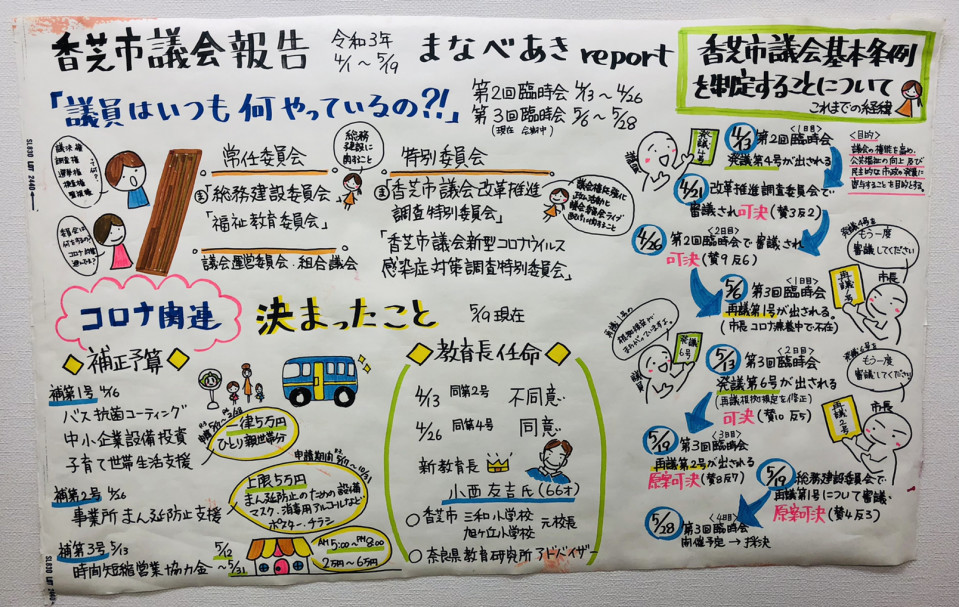 香芝市議会報告
令和3年
4/1~5/19
まなべあき report
「議員はいつも何やっているの?!」
第2回臨時会 4/13~4/26
第3回臨時会 5/6~5/28
(現在 会期中)
議決権
調査権
選挙権
常任委員会
㊟「総務建設委員会」
「福祉教育委員会」
議会運営委員会・組合議会
総務
建設に
関すること
特別委員会
「香芝市議会改革推進
調査特別委員会」
「香芝市議会新型コロナウイルス
感染症対策調査特別委員会」
コロナ関連
決まったこと
5/19現在
補正予算
補第1号 4/16
バス抗菌コーティング
中小企業設備投資
子育て世帯生活支援
一律5万円
ひとり親世帯分
補第2号 4/26
事業所まん延防止支援
上限5万円
まん延防止のための設備
マスク、消毒用アルコールなど
ポスター、チラシ
補第3号 5/13
時間短縮営業協力金
5/12
~5/31
AM5:00~PM8:00
2万円~6万円
教育長任命
4/13 同第2号 不同意
4/26 同第4号 同意
新教育長
小西友吉氏(66才)
○香芝市 三和小学校
旭ケ丘小学校
元校長
○奈良県教育研究所 アドバイザー
香芝市議会基本条例
を制定することについて
これまでの経緯
<1日目>
4/13 第2回臨時会
発議第4号が出される
<目的>
議会の機能を高め、
公共福祉の向上及び
民主的な市政の発展に
寄与することを目的とする。
議員
発議4号
4/21 改革推進調査委員会で
審議され可決(賛3反2)
<2日目>
4/26 第2回臨時会で審議され
可決(賛9反6)
発議4号を
もう一度
審議してください
市長
再議1号
<1日目>
5/6 第3回臨時会
再議第1号が出される。
(市長コロナ療養中で不在)
発議6号
議員
<2日目>
5/13 第3回臨時会
発議第6号が出される
(再議根拠規定を修正)
可決(賛10反5)
発議6号を
もう一度
審議してください
市長
再議2号
<3日目>
5/19 第3回臨時会
再議第2号が出される
原案可決(賛8反7)
5/19 総務建設委員会で
再議第1号について審議
原案可決(賛4反3)
<4日目>
5/28 第3回臨時会
開催予定→採決